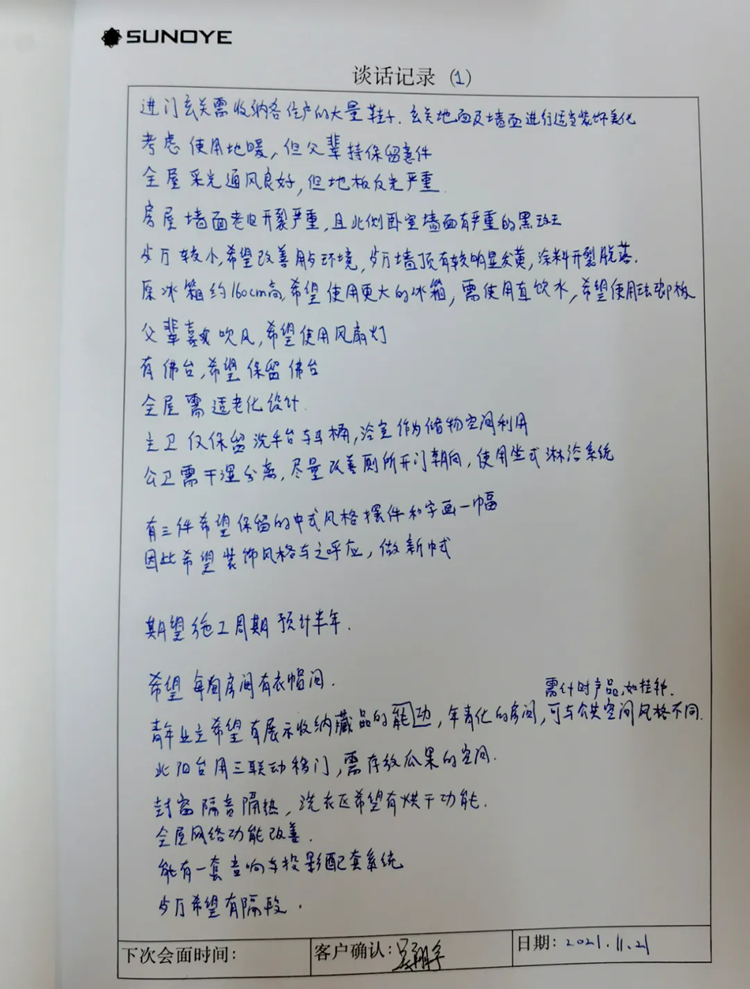 SUNOYE
谈话记录 (1)
进门玄关需收纳各住户的大量鞋子.玄关地面及墙面进行适当装饰美化
考虑使用地暖,但父辈持保留意件
全屋采光通风良好,但地板反光严重.
房屋墙面老旧开裂严重,且北侧卧室墙面有严重的黑斑
歺厅较小,希望改善用歺环境,歺厅墙顶有较明显发黄,涂料开裂脱落.
原冰箱约160cm高,希望使用更大的冰箱,需使用直饮水,希望使用洁
父辈喜欢吹风,希望使用风扇灯
有佛台,希望保留佛台
全屋需适老化设计.
主卫仅保留洗手台与马桶,浴室作为储物空间利用
公卫需干湿分离,尽量改善厕所开门朝向,使用坐式淋浴系统
有三件希望保留的中式风格摆件和字画一幅
因此希望装饰风格与之呼应,做新中式
期望施工周期预计半年.
希望每间房间有衣帽间.
需计时产品,如挂钟.
青年业主希望有展示收纳藏品的功能,年青化的房间,可与公共空间风格不同.
北阳台用三联动移门,需存放瓜果的空间.
封窗隔音隔热,洗衣区希望有烘干功能.
全屋网络功能改善.
能有一套音响与投影配套系统
歺厅希望有隔段.
下次会面时间:
客户确认:
日期: 2021.11.21